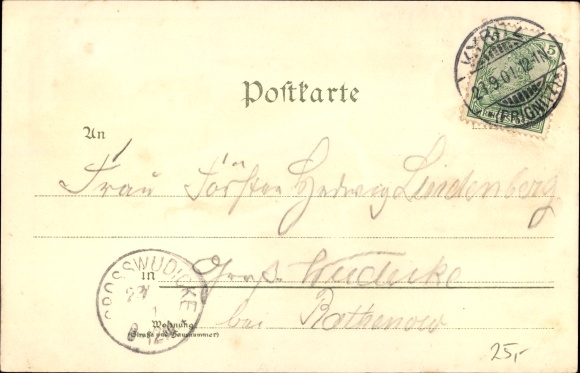 KYRITZ
5
21.9.01.12-1N.
(PRIGNITZ)
Postkarte
An
Frau Förster Hedwig Lindenberg
GROSSWUDICKE
in Groß Wudicke
Wohnung
(Straße und Hausnummer)
bei Rathenow
25,-